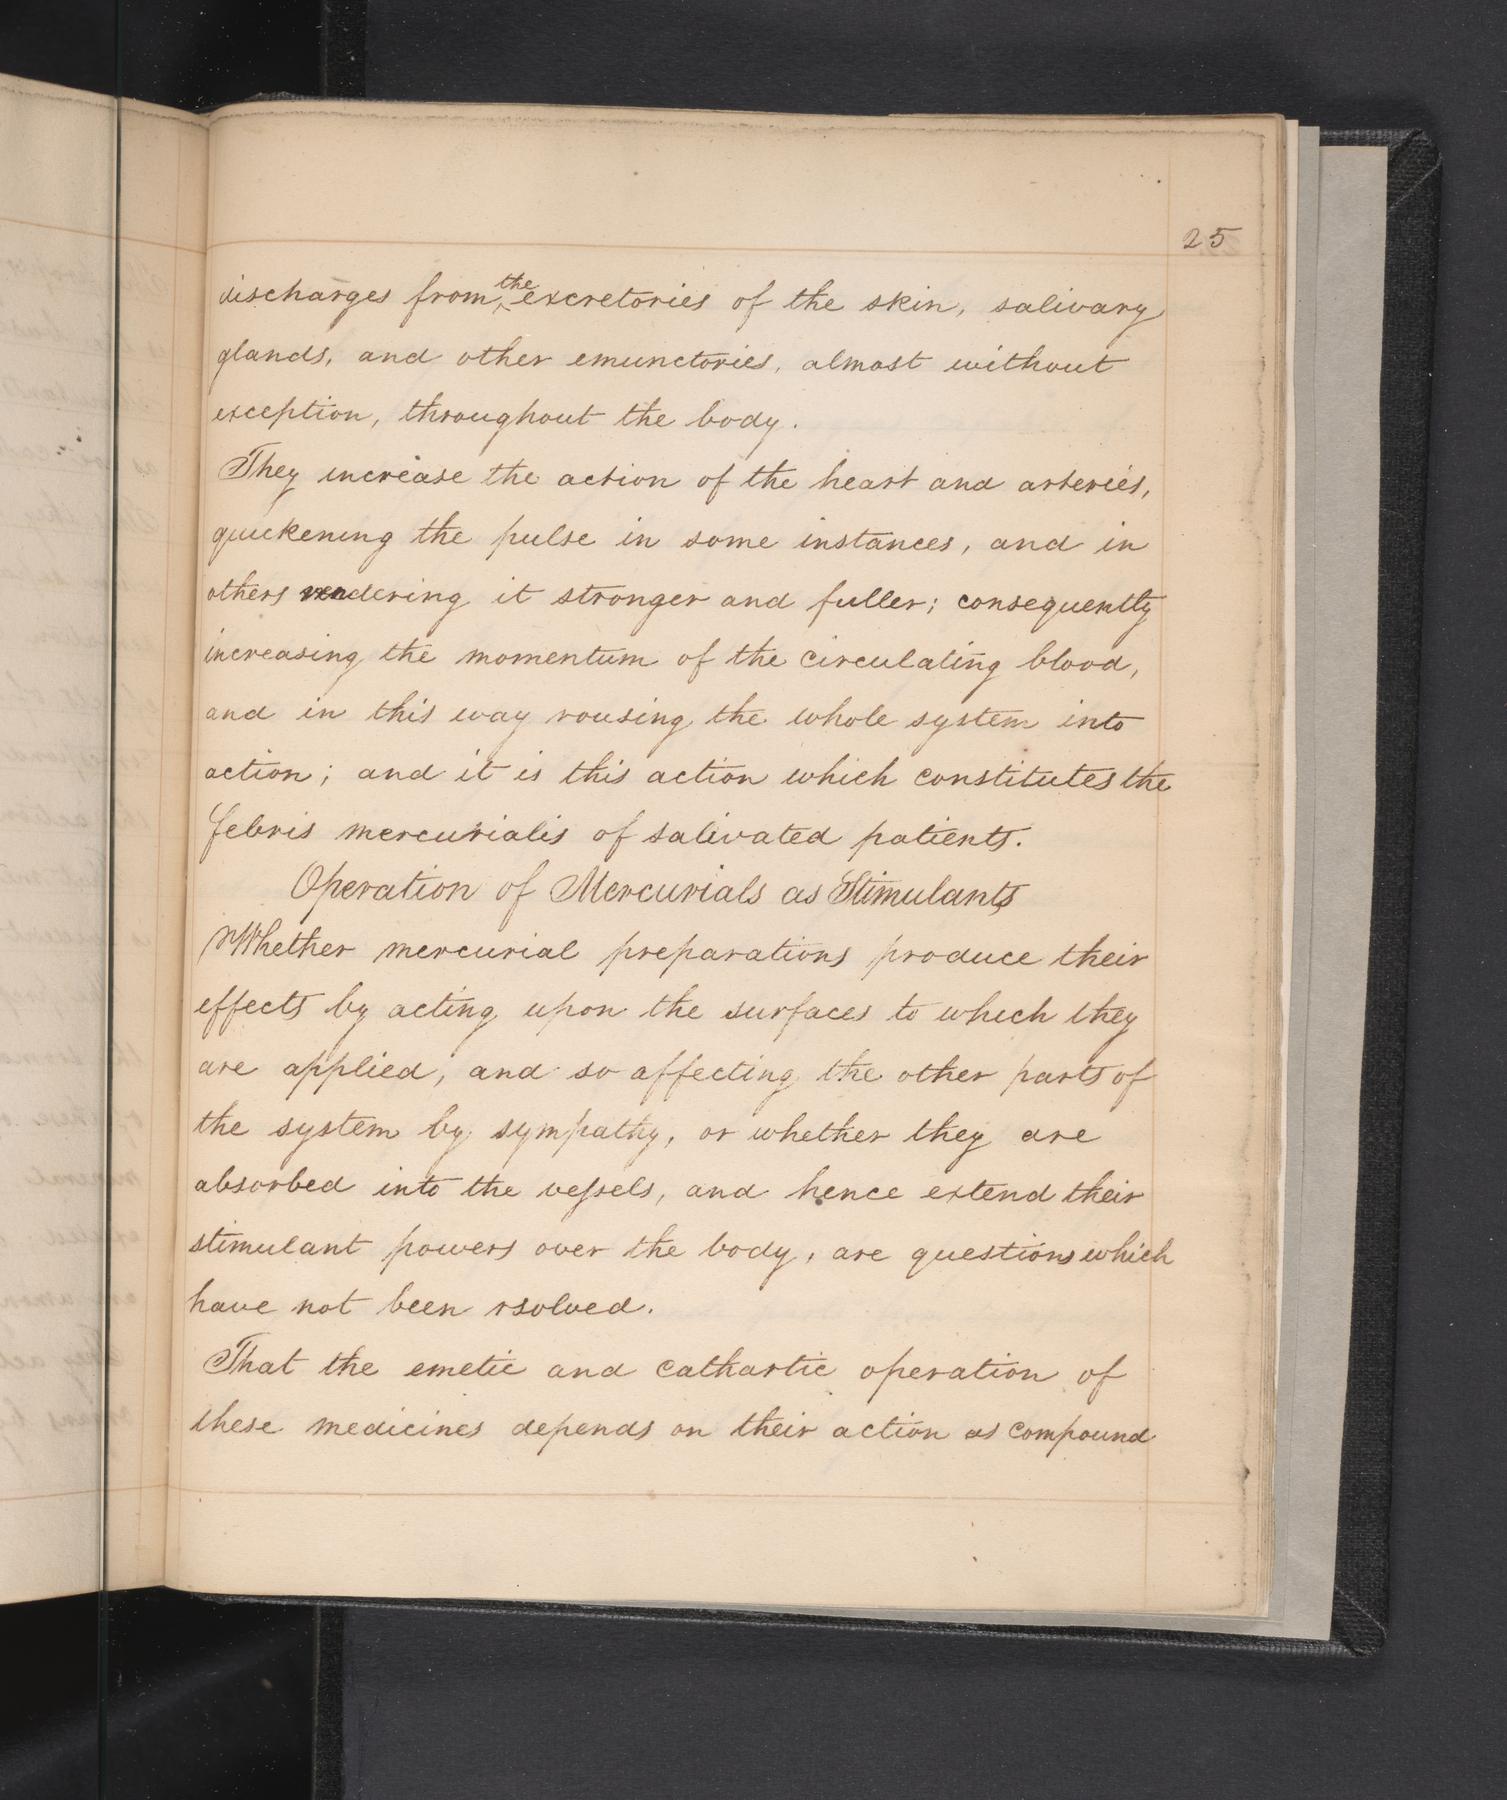 25
discharges from the excretories of the skin, salivary
glands, and other emunctories, almost without
exception, throughout the body.
They increase the action of the heart and arteries,
quickening the pulse in some instances, and in
others rendering it stronger and fuller; consequently
increasing the momentum of the circulating blood,
and in this way rousing the whole system into
action; and it is this action which constitutes the
febris mercurialis of salivated patients.
Operation of Mercurials as Stimulants
Whether mercurial preparations produce their
effects by acting upon the surfaces to which they
are applied, and so affecting the other parts of
the system by sympathy, or whether they are
absorbed into the veſsels, and hence extend their
stimulant powers over the body, are questions which
have not been rsolved.
That the emetic and cathartic operation of
these medicines depends on their action as compound